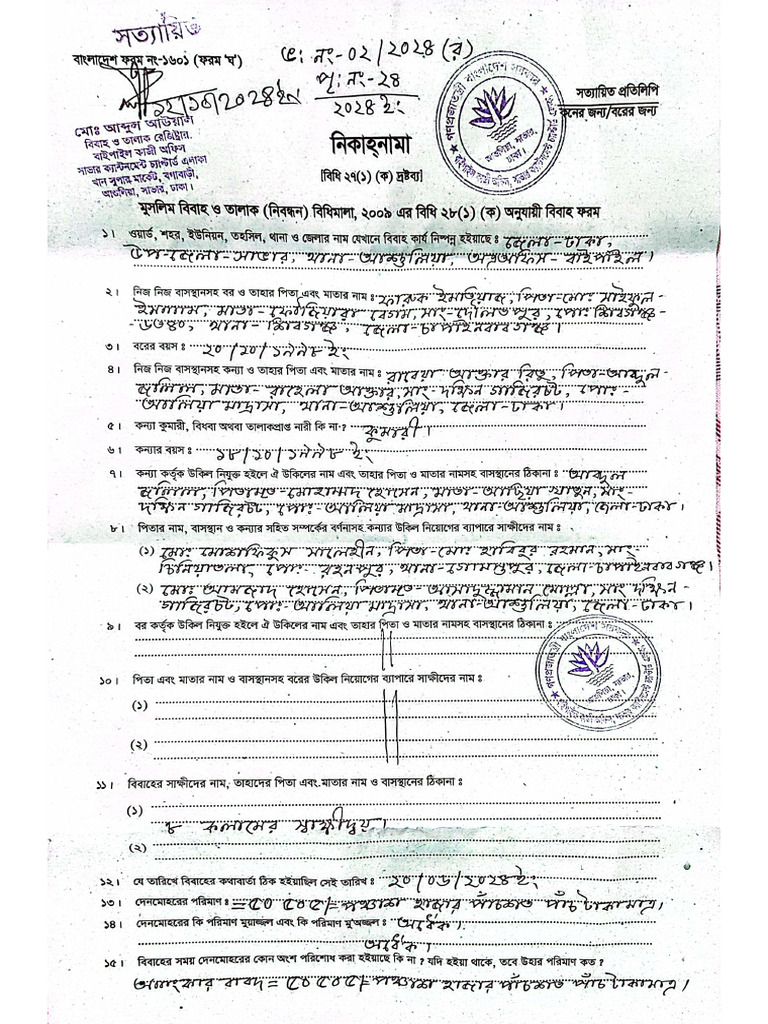 সত্যায়িত
বাংলাদেশ ফরম নং-১৬০১ (ফরম 'ঘ')
ভ: নং-০২/২০২৪ (র)
পৃ: নং-২৪
২০২৪ ইং
সত্যায়িত প্রতিলিপি
কনের জন্য/বরের জন্য
মোঃ আব্দুল আউয়াল
বিবাহ ও তালাক রেজিষ্ট্রার,
বাইপাইল কাজী অফিস
সাভার ক্যান্টনমেন্ট চ্যার্টার্ড এলাকা
খান সুপার মার্কেট, বগাবাড়ী,
আশুলিয়া, সাভার, ঢাকা।
গণপ্রজাতন্ত্রী বাংলাদেশ সরকার
আশুলিয়া, সাভার,
ঢাকা।
নিকাহ্‌নামা
[বিধি ২৭(১) (ক) দ্রষ্টব্য]
মুসলিম বিবাহ ও তালাক (নিবন্ধন) বিধিমালা, ২০০৯ এর বিধি ২৮(১) (ক) অনুযায়ী বিবাহ ফরম
১। ওয়ার্ড, শহর, ইউনিয়ন, তহসিল, থানা ও জেলার নাম যেখানে বিবাহ কার্য নিষ্পন্ন হইয়াছে : জেলা-ঢাকা,
উপ-জেলা-সাভার, থানা-আশুলিয়া, অত্রঅফিস-বাইপাইল।
২। নিজ নিজ বাসস্থানসহ বর ও তাহার পিতা এবং মাতার নাম : ফারুক ইমতিয়াজ, পিতা-মোঃ সাইফুল-
ইসলাম, মাতা- বেগম, সাং-দৌলতপুর, পোঃ শিবগঞ্জ-
৬৩৪০, থানা-শিবগঞ্জ, জেলা-চাপাইনবাবগঞ্জ।
৩। বরের বয়স : ২০/১০/১৯৯৮ ইং
৪। নিজ নিজ বাসস্থানসহ কন্যা ও তাহার পিতা এবং মাতার নাম : রাবেয়া আক্তার রিতু, পিতা-আব্দুল-
জলিল, মাতা-রাহেলা আক্তার, সাং-দক্ষিন গাজিরচট, পোঃ-
আলিয়া মাদ্রাসা, থানা-আশুলিয়া, জেলা-ঢাকা।
৫। কন্যা কুমারী, বিধবা অথবা তালাকপ্রাপ্ত নারী কি না? : কুমারী।
৬। কন্যার বয়স : ১৮/১০/১৯৯৮ ইং
৭। কন্যা কর্তৃক উকিল নিযুক্ত হইলে ঐ উকিলের নাম এবং তাহার পিতা ও মাতার নামসহ বাসস্থানের ঠিকানা : আব্দুল
জলিল, পিতামৃত-মোহাম্মদ হোসেন, মাতা- খাতুন, সাং-
দক্ষিন গাজিরচট, পোঃ-আলিয়া মাদ্রাসা, থানা-আশুলিয়া, জেলা-ঢাকা।
৮। পিতার নাম, বাসস্থান ও কন্যার সহিত সম্পর্কের বর্ণনাসহ কন্যার উকিল নিয়োগের ব্যাপারে সাক্ষীদের নাম :
(১) মোঃ মোশফিকুস সালেহীন, পিতা-মোঃ হাবিবুর রহমান, সাং
পোঃ-রহনপুর, থানা-গোমস্তপুর, জেলা-চাপাইনবাবগঞ্জ।
(২) মোঃ আমজাদ হোসেন, পিতামৃত-আসাদুজ্জামান মোল্লা, সাং দক্ষিন-
গাজিরচট, পোঃ-আলিয়া মাদ্রাসা, থানা-আশুলিয়া, জেলা-ঢাকা।
৯। বর কর্তৃক উকিল নিযুক্ত হইলে ঐ উকিলের নাম এবং তাহার পিতা ও মাতার নামসহ বাসস্থানের ঠিকানা :
গণপ্রজাতন্ত্রী বাংলাদেশ সরকার
আশুলিয়া, সাভার,
ঢাকা।
১০। পিতা এবং মাতার নাম ও বাসস্থানসহ বরের উকিল নিয়োগের ব্যাপারে সাক্ষীদের নাম :
(১)
(২)
১১। বিবাহের সাক্ষীদের নাম, তাহাদের পিতা এবং মাতার নাম ও বাসস্থানের ঠিকানা :
(১)
৮ কলামের স্বাক্ষীদ্বয়।
(২)
১২। যে তারিখে বিবাহের কথাবার্তা ঠিক হইয়াছিল সেই তারিখ : ২০/০৬/২০২৪ ইং
১৩। দেনমোহরের পরিমাণ : =৫০৫০৫/= পঞ্চাশ হাজার পাঁচশত পাঁচ টাকামাত্র।
১৪। দেনমোহরের কি পরিমাণ মুয়াজ্জল এবং কি পরিমাণ মু'অজ্জল : অর্ধেক।
অর্ধেক।
১৫। বিবাহের সময় দেনমোহরের কোন অংশ পরিশোধ করা হইয়াছে কি না? যদি হইয়া থাকে, তবে উহার পরিমাণ কত?
অলংকার বাবদ = ৫০৫০৫/= পঞ্চাশ হাজার পাঁচশত পাঁচ টাকামাত্র।